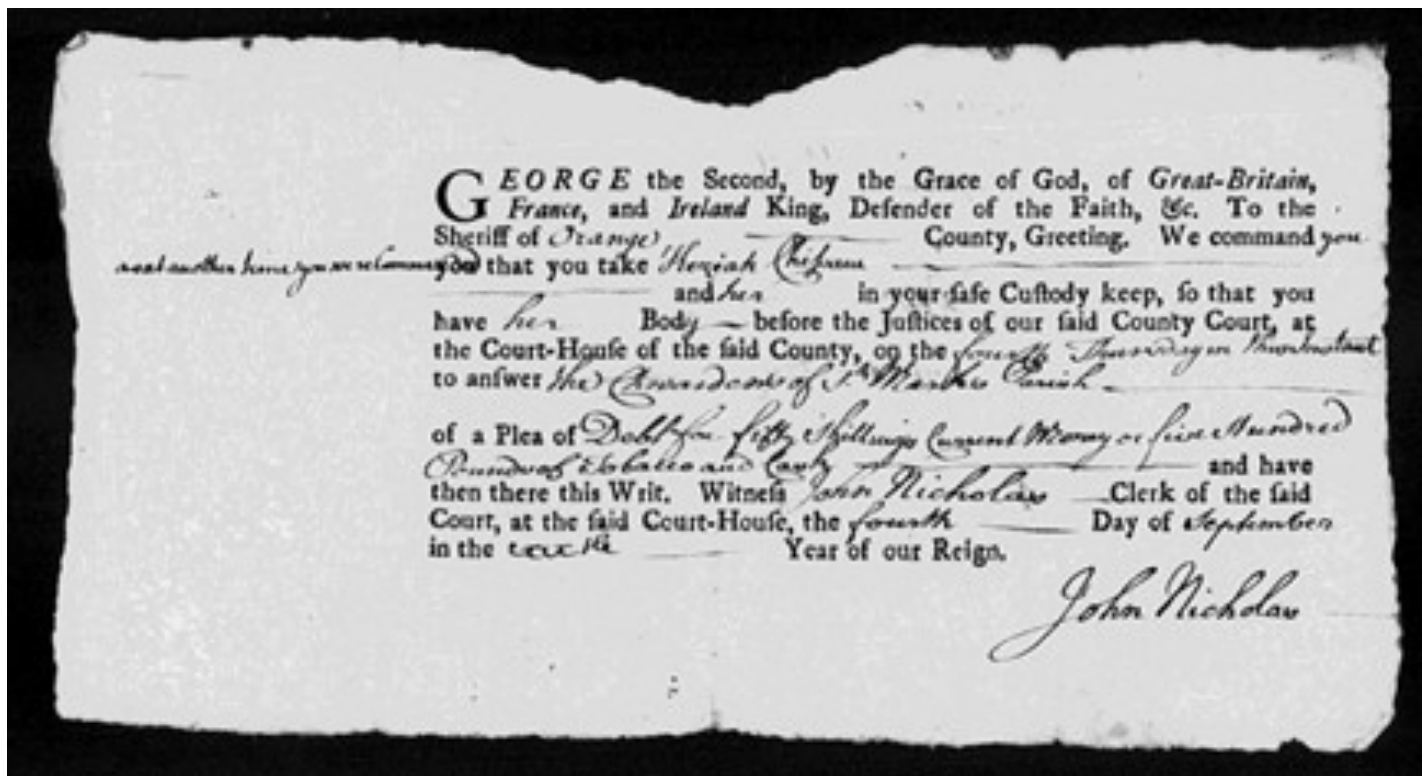 GEORGE the Second, by the Grace of God, of Great-Britain,
France, and Ireland King, Defender of the Faith, &c. To the
Sheriff of Orange County, Greeting. We command you
as at another time you were Commanded you that you take Keziah
and her in your safe Custody keep, so that you
have her Body before the Justices of our said County Court, at
the Court-House of the said County, on the fourth Thursday in
to answer the Churchwardens of St. Marks Parish
of a Plea of Debt for fifty Shillings Current Money or five Hundred
Pounds of Tobacco and and have
then there this Writ. Witness John Nicholas Clerk of the said
Court, at the said Court-House, the fourth Day of September
in the Year of our Reign.
John Nicholas